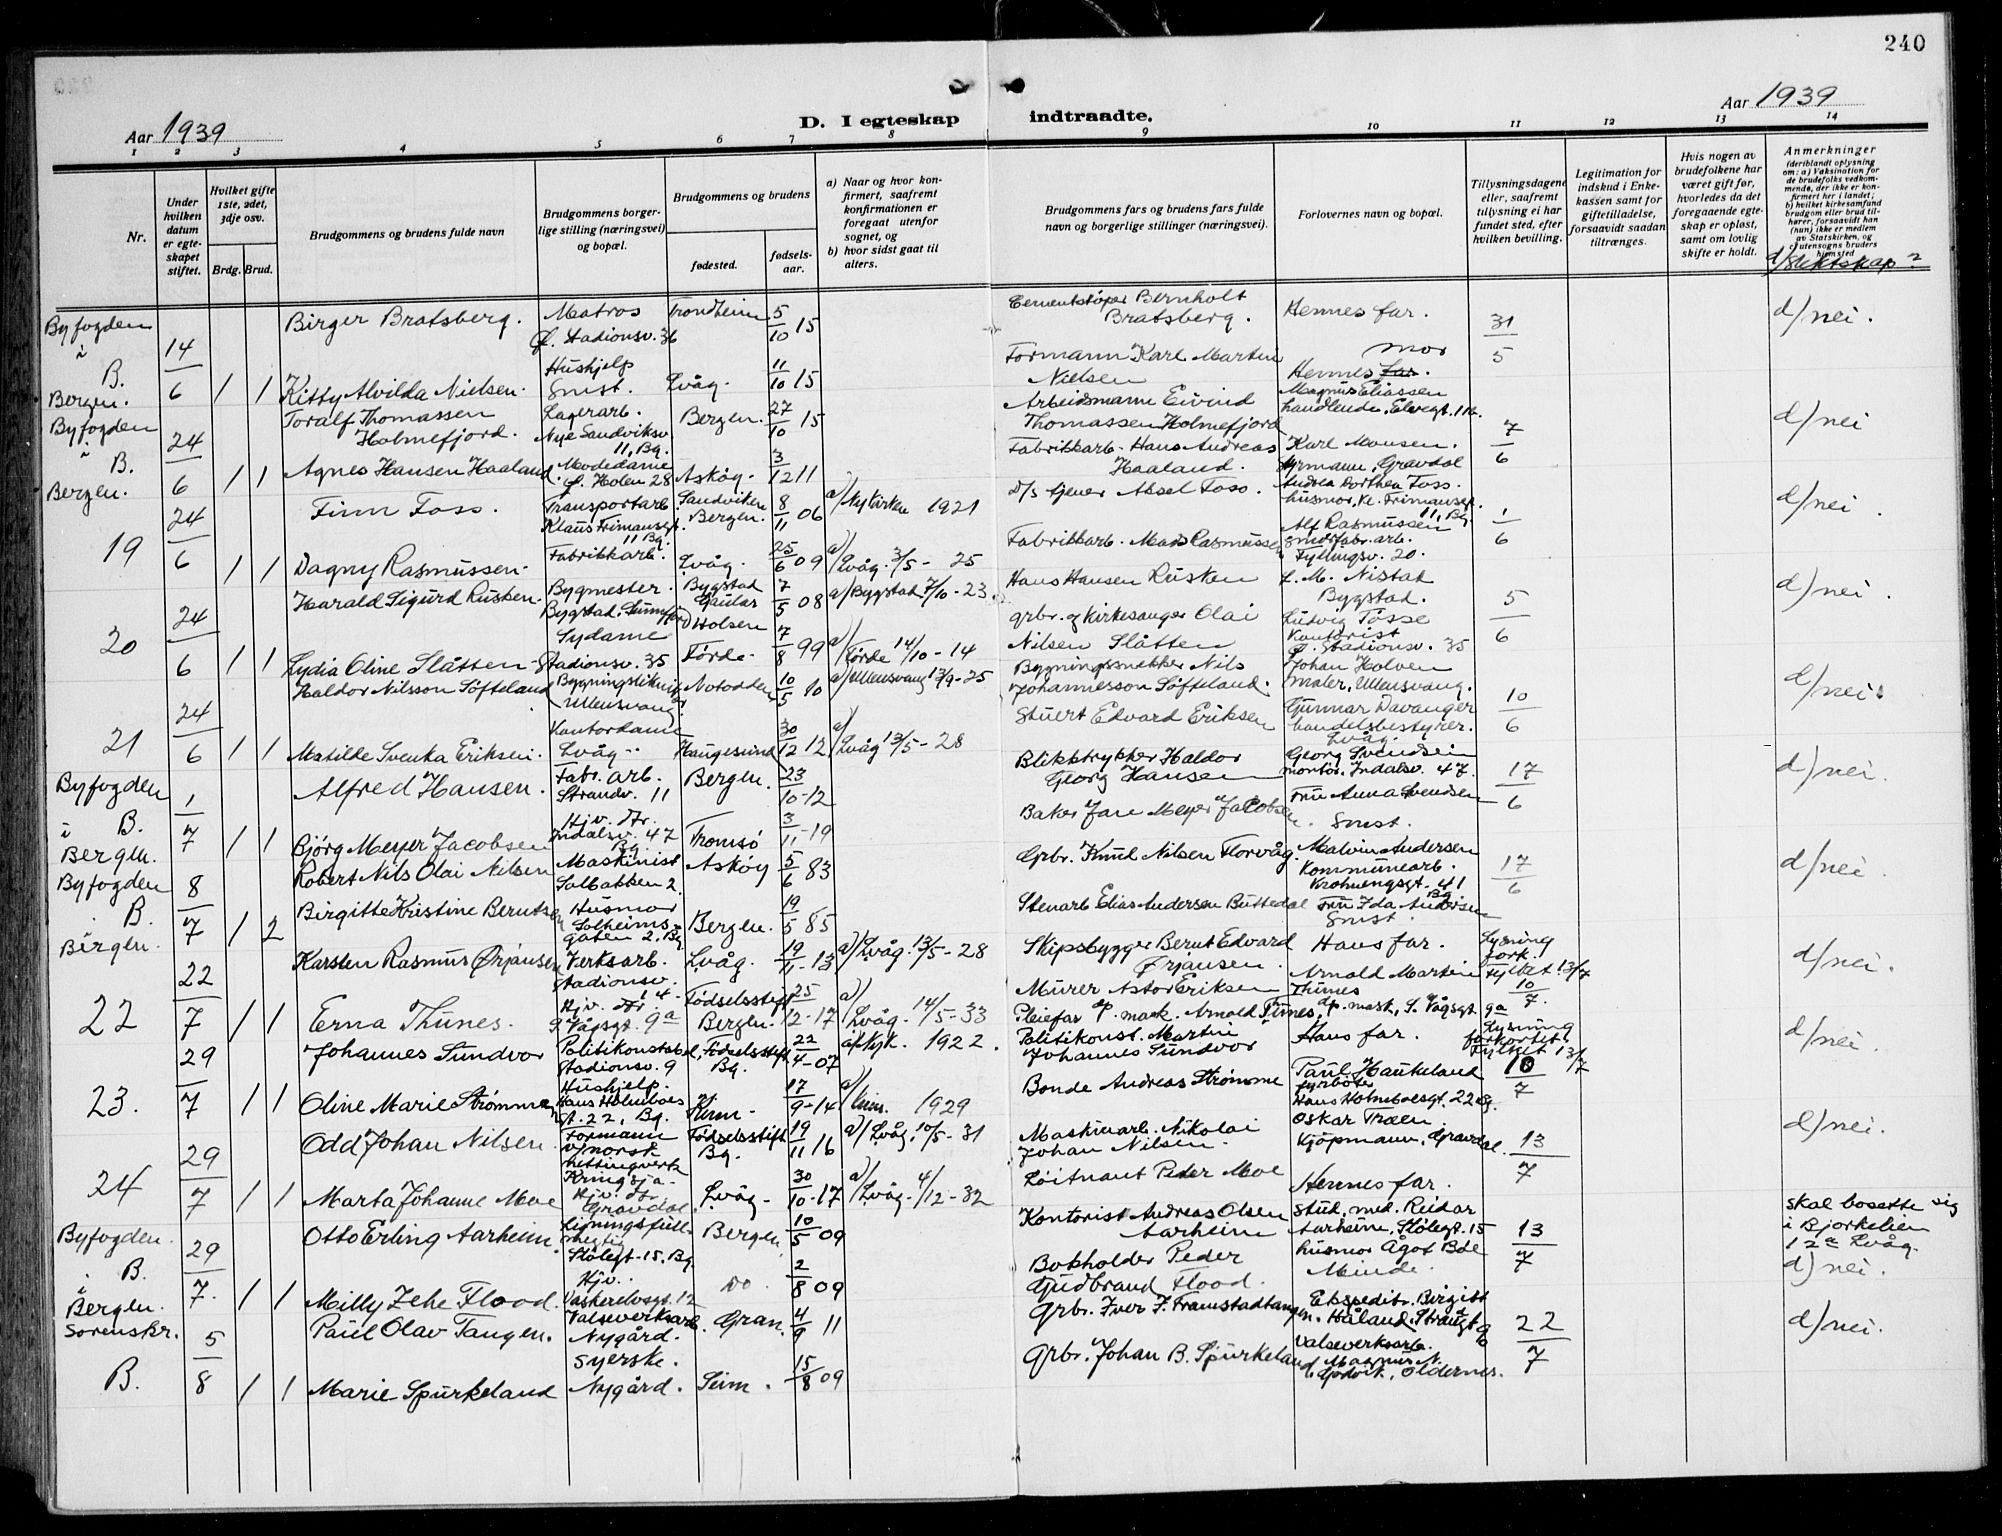 240
Aar 1939
D. I egteskap indtraadte.
Aar 1939
1 2 3 4 5 6 7 8 9 10 11 12 13 14
Nr.
Under hvilken datum er egteskapet stiftet.
Hvilket gifte 1ste, 2det, 3dje osv.
Brdg. Brud.
Brudgommens og brudens fulde navn
Brudgommens borgerlige stilling (næringsvei) og bopæl.
Brudgommens og brudens
fødested.
fødselsaar.
a) Naar og hvor konfirmert, saafremt konfirmationen er foregaat utenfor sognet, og
b) hvor sidst gaat til alters.
Brudgommens fars og brudens fars fulde navn og borgerlige stillinger (næringsvei).
Forlovernes navn og bopæl.
Tillysningsdagene eller, saafremt tillysning ei har fundet sted, efter hvilken bevilling.
Legitimation for indskud i Enkekassen samt for giftetilladelse, forsaavidt saadan tiltrænges.
Hvis nogen av brudefolkene har været gift før, hvorledes da det foregaaende egteskap er opløst, samt om lovlig skifte er holdt.
Anmerkninger
(deriblandt oplysning om: a) Vaksination for de brudefolks vedkommende, der ikke er konfirmert her i landet; b) hvilket kirkesamfund brudgom eller brud tilhører, forsaavidt han (hun) ikke er medlem av Statskirken, og c) utensogns bruders hjemsted
d/ slektskap?
Byfogden i B. Bergen.
14/6 1 1
Birger Bratsberg. Matros Stadionsv. 36 Trondheim 5/10 15
Cementstøper Bernholt Bratsberg. Hennes far. 31/5 d/ nei.
Kitty Alvilda Nielsen. Hushjelp Smst. Lvåg. 11/10 15
Formann Karl Martin Nielsen Hennes mor
Byfogden i B. Bergen.
24/6 1 1
Toralf Thomassen Holmefjord. Lagerarb. Nye Sandviksv. 11, Bg. Bergen. 27/10 15
Arbeidsmann Eivind Thomassen Holmefjord Magnus Eliassen handlende, Elvegt. 11b. 7/6 d/ nei
Agnes Hansen Haaland. Modedame Holen 28 Askøy. 3/12 11
Fabrikkarb. Hans Andreas Haaland. Karl Monsen. styrmann, Gravdal
19
24/6 1 1
Finn Foss. Transportarb. Klaus Frimansgt. 11 Bg. Sandviken Bergen. 8/11 06 a/ Nykirken 1921
D/s tjener Aksel Foss. Andrea Dorthea Foss. husmor, Kl. Frimansgt. 11, Bg. 1/6 d/ nei.
Dagny Rasmussen. Fabrikkarb. Lvåg. 25/6 09 a/ Lvåg. 3/5 - 25
Fabrikkarb. Mads Rasmussen Alf Rasmussen smed fabr. arb. Fyllingsv. 20.
20
24/6 1 1
Harald Sigurd Rusken. Bygmester. Bygstad, Sunnfjord Bygstad Gaular 7/5 08 a/ Bygstad 7/10 - 23.
Hans Hansen Rusken L. M. Nistad Bygstad. 5/6 d/ nei.
Lydia Oline Slåtten Sydame Stadionsv. 35 Holsen Førde. 7/8 99 a/ Førde 14/10 - 14
grbr. og kirkesanger Olai Nilsen Slåtten Ludvig Tøsse Kontorist Stadionsv. 35
21
24/6 1 1
Haldor Nilsson Softeland Bygningstekniker Ullensvang Notodden 10/5 10 a/ Ullensvang 13/9 - 25
Bygningssnekker Nils Johannesson Softeland. Johan Holven maler, Ullensvang. 10/6 d/ nei.
Matilde Svenka Eriksen. Kontordame Lvåg. Haugesund 30/12 12 a/ Lvåg 13/5 - 28
Stuert Edvard Eriksen Gunnar Davanger handelsbestyrer. Lvåg.
Byfogden i B. Bergen.
1/7 1 1
Alfred Hansen. Fabr. arb. Strandv. 11 Bergen. 23/10-12
Blikktrykker Haldor Georg Hansen Georg Svendsen montør. Indalsv. 47. 17/6 d/ nei.
Bjørg Meyer Jacobsen Hjv. dtr. Indalsv. 47 Bg. Tromsø 3/11-19
Baker Jare Meyer Jacobsen. Fru Anna Svendsen Smst.
Byfogden i B. Bergen.
8/7 1 2
Robert Nils Olai Nilsen Maskinist Solbakken 2. Askøy 5/6 83
Grbr. Knud Nilsen Florvåg. Malvin Andersen Kommunearb. Krohnengsgt. 41 Bg. 17/6 d/ nei.
Birgitte Kristine Berntsen Husmor Solheimsgaten 2, Bg. Bergen. 19/5 85
Stenarb. Elias Andersen Buttedal Fru Ida Andersen Smst.
22
22/7 1 1
Karsten Rasmus Ørjansen Verksarb. Stadionsv. 14. Lvåg. 19/11-13 a/ Lvåg. 13/5 - 28
Skipsbygger Bernt Edvard Ørjansen. Hans far. Lysning fork. Fylket 13/7 10/7. d/ nei.
Erna Thunes. Hjv. dtr. S. Vågsgt. 9a Fødselsstift. Bergen. 25/12-17 a/ Lvåg. 14/5 - 33
Murer Astor Eriksen Pleiefar dp. mask. Arnold Thunes, Arnold Martin Thunes dp. mask, S. Vågsgt. 9a
23.
29/7 1 1
Johannes Sundvor Politikonstabel, Stadionsv. 9 Fødselsstift Bg. 22/4-07 1922.
Politikonst. Martin Johannes Sundvor Hans far. Lysning forkortet. Fylket 13/7 10/7 d/ nei.
Oline Marie Strømmen Hushjelp. Hans Holmboes gt. 22, Bg. Kinn. 17/9-14 a/ Kinn. 1929
Bonde Andreas Strømme Paul Haukeland fyrbøter Hans Holmboesgt. 22 Bg.
24
29/7 1 1
Odd Johan Nilsen. Formann v/ norsk nettingverk Kringsjå. Fødselsstift Bg. 19/11 16 a/ Lvåg. 10/5 - 31
Maskinarb. Nikolai Johan Nilsen. Oskar Træen. Kjøpmann, Gravdal. 13/7 d/ nei.
Marta Johanne Moe Hjv. dtr. Gravdal Lvåg. 30/10-17 a/ Lvåg. 4/12 - 32
Løitnant Peder Moe Hennes far.
Byfogden i B. Bergen.
29/7. 1 1
Otto Erling Aarheim. Ligningsfullmegtig Stølegt. 15, Bg. Bergen. 10/5 09
Kontorist Andreas Olsen Aarheim Stud. med. Reidar Aarheim, Stølegt. 15 13/7
skal bosette sig i Bjørkelien 12a Lvåg. d) nei.
Milly Zehe Flood. Hjv. Vaskerelvsgt. 12 Do. 2/8 09
Bokholder Peder Gudbrand Flood. husmor Ågot Bøe Minde.
Sorenskr. B.
5/8 1 1
Paul Olav Tangen. Valseverksarb. Nygård. Gran. 4/9 11
Grbr. Iver J. Framstadtangen. Ekspeditr. Birgitt Håland, Strangt 9 22/7 d/ nei.
Marie Spurkeland Syerske. Nygård. Seim. 15/8 09
Grbr. Johan B. Spurkeland. Valseverksarb. Magnus N. Oldernes.